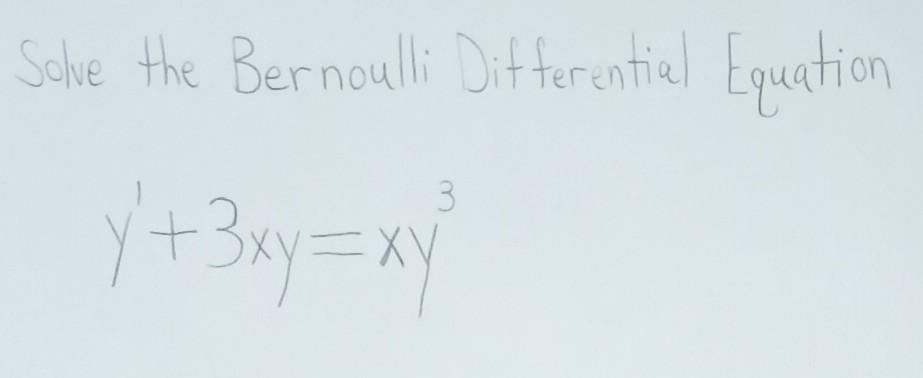 Solve the Bernoulli Differential Equation
y'+3xy=xy³